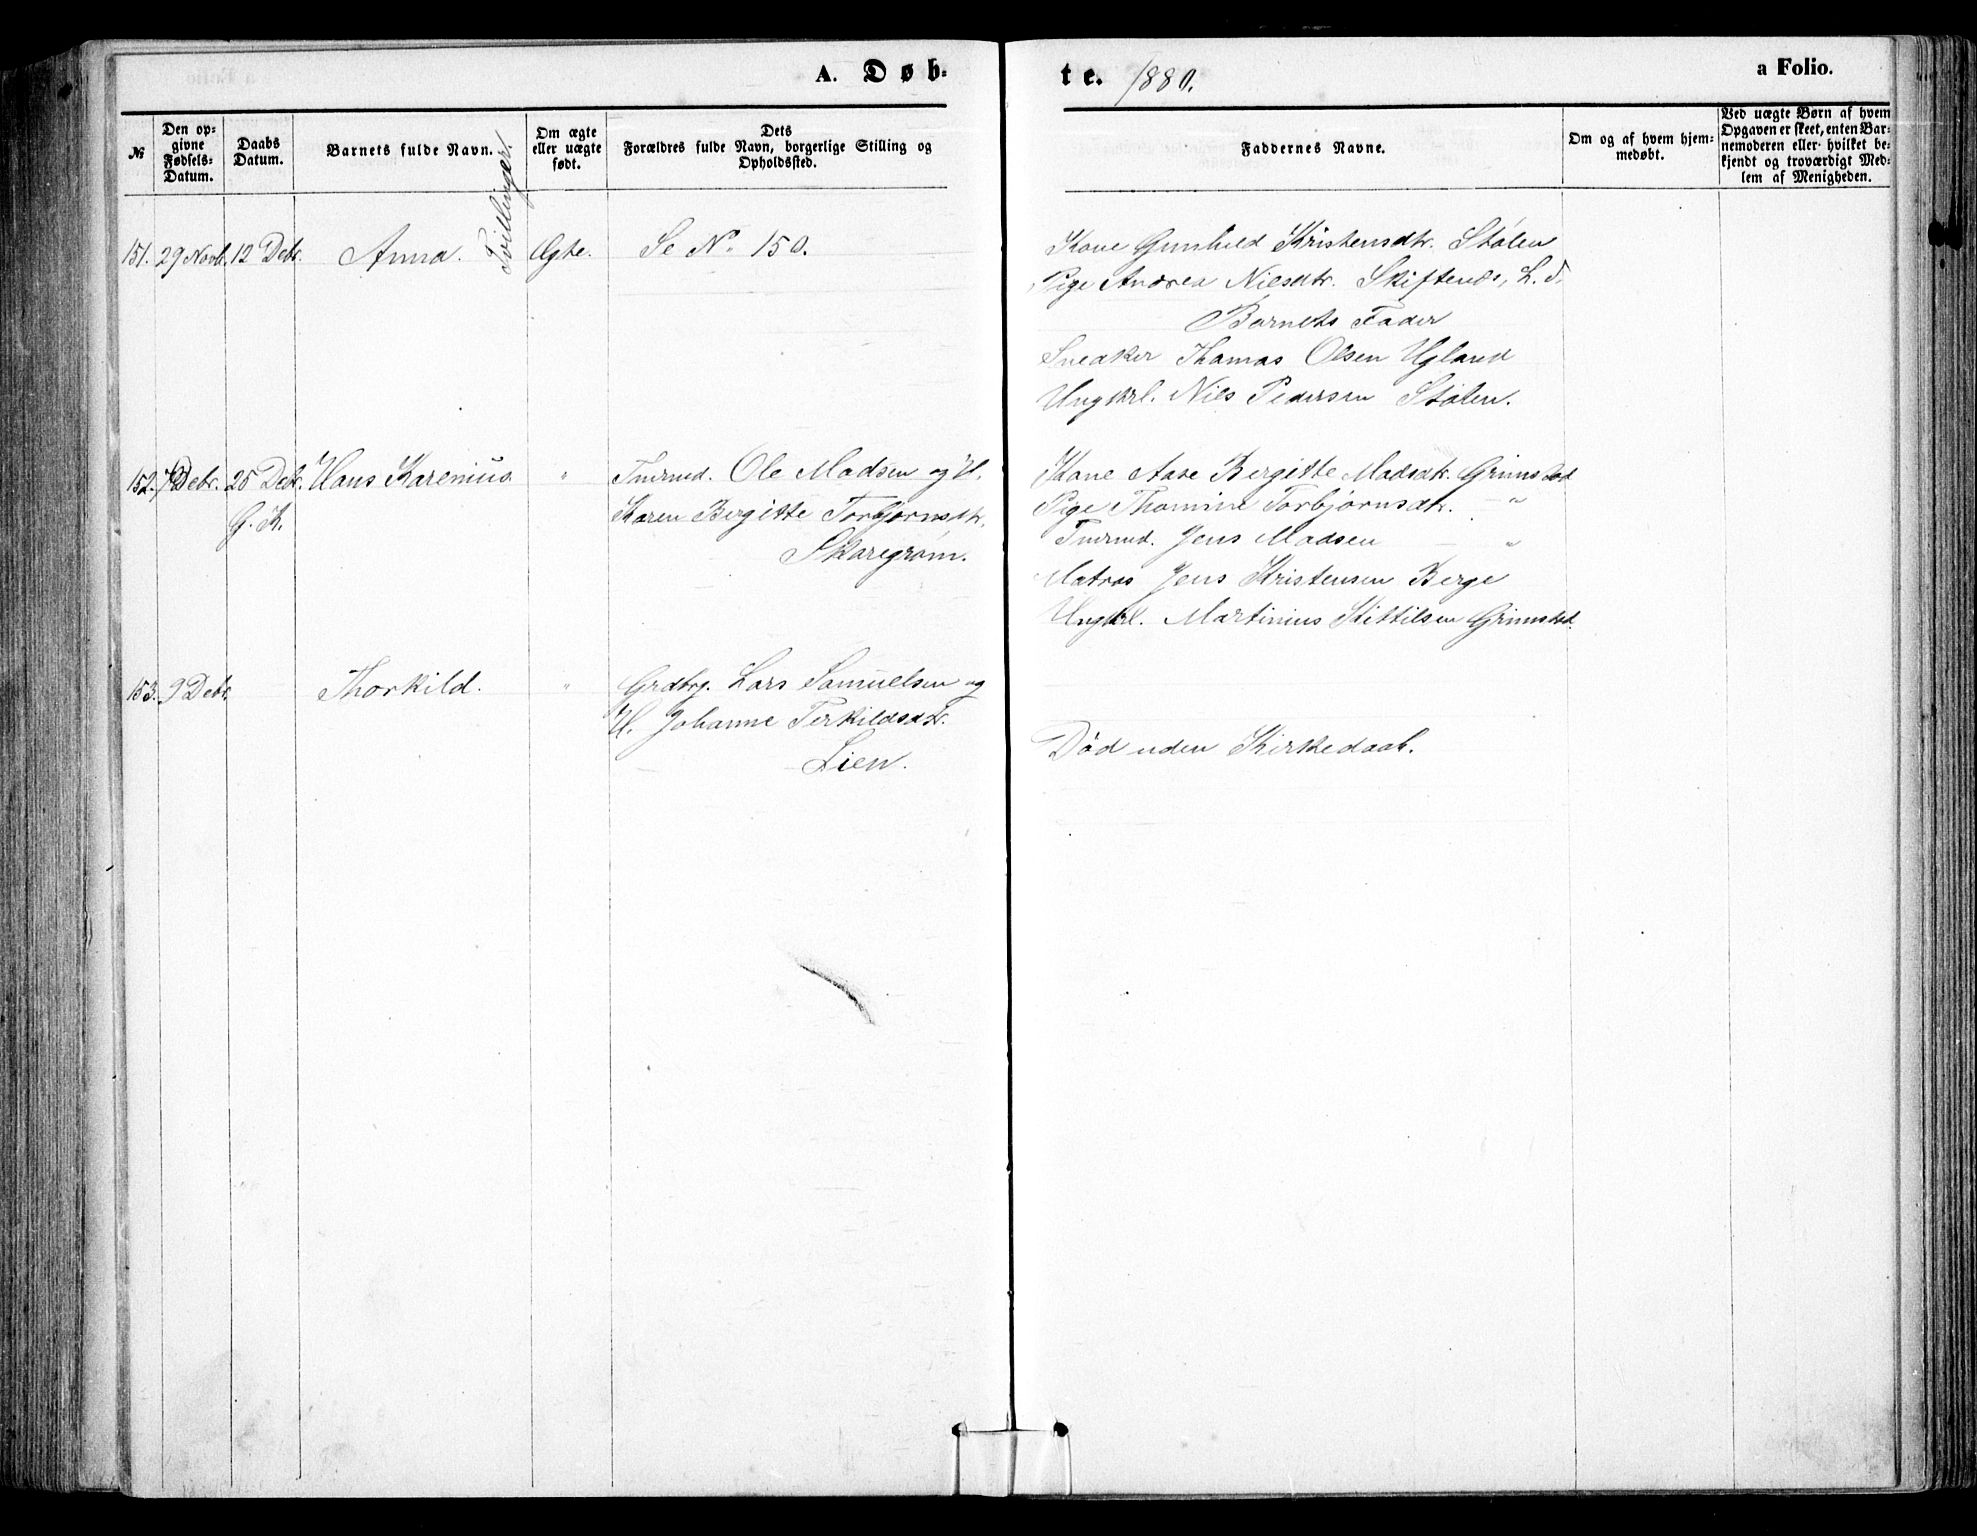 A. Døb-
te. 1880.
a Folio.
№
Den op-
givne
Fødsels-
Datum.
Daabs
Datum.
Barnets fulde Navn.
Om ægte
eller uægte
født.
Dets
Forældres fulde Navn, borgerlige Stilling og
Opholdssted.
Faddernes Navne.
Om og af hvem hjem-
medøbt.
Ved uægte Børn af hvem
Opgaven er skeet, enten Bar-
nemoderen eller hvilket be-
kjendt og troværdigt Med-
lem af Menigheden.
151. 29 Novb. 12 Debr. Anna. Tvillinger. Ægte. Se No 150.
Kone Gunhild Kristensdtr. Stølen
Pige Andrea Nielsdtr. Skiftenes, L. S.
Barnets Fader
Snedker Thomas Olsen Ugland
Ungkrl. Niels Pedersen Stølen.
152. 7 Debr. 25 Debr. Hans Karenius. " Tmrmd. Ole Madsen og H.
G. K. Karen Bergitte Torbjørnsdtr.
Skaregrøm.
Kone Aase Bergitte Madsdtr. Grimstad
Pige Thomine Torbjørnsdtr. — "
Tmrmd. Jens Madsen — "
Matros Jens Kristensen Berge
Ungkrl. Martinius Kittilsen Grimstad.
153. 9 Debr. Thorkild. " Grdbrg. Lars Samuelsen og
H. Johanne Terkildsdtr.
Lien.
Død uden Kirkedaab.